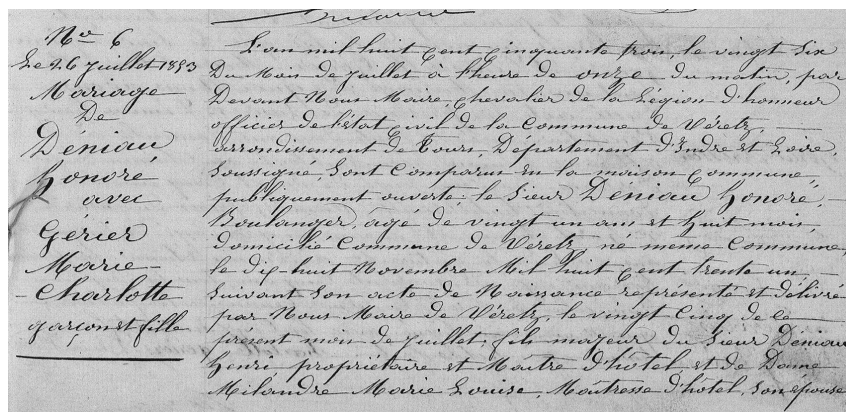 No 6
Le 26 Juillet 1853
Mariage
De
Déniau
Honoré
avec
Gérier
Marie-
-Charlotte
garçon et fille
L'an mil huit cent cinquante trois, le vingt six
Du Mois de Juillet à l'heure de onze du matin, par
Devant Nous Maire, Chevalier de la Légion d'honneur
officier de l'état civil de la Commune de Véretz,
arrondissement de Tours, Département d'Indre et Loire,
soussigné, sont comparus en la maison commune,
publiquement ouverte; le Sieur Déniau Honoré,
Boulanger, agé de vingt un ans et huit mois,
domicilié Commune de Véretz, né meme Commune,
le dix-huit Novembre Mil huit cent trente un,
suivant son acte de Naissance représenté et délivré
par Nous Maire de Véretz, le vingt cinq de ce
présent mois de Juillet; fils majeur du Sieur Déniau
Henri propriétaire et Maître d'hôtel, et de Dame
Milandre Marie Louise, Maîtresse d'hôtel, son épouse